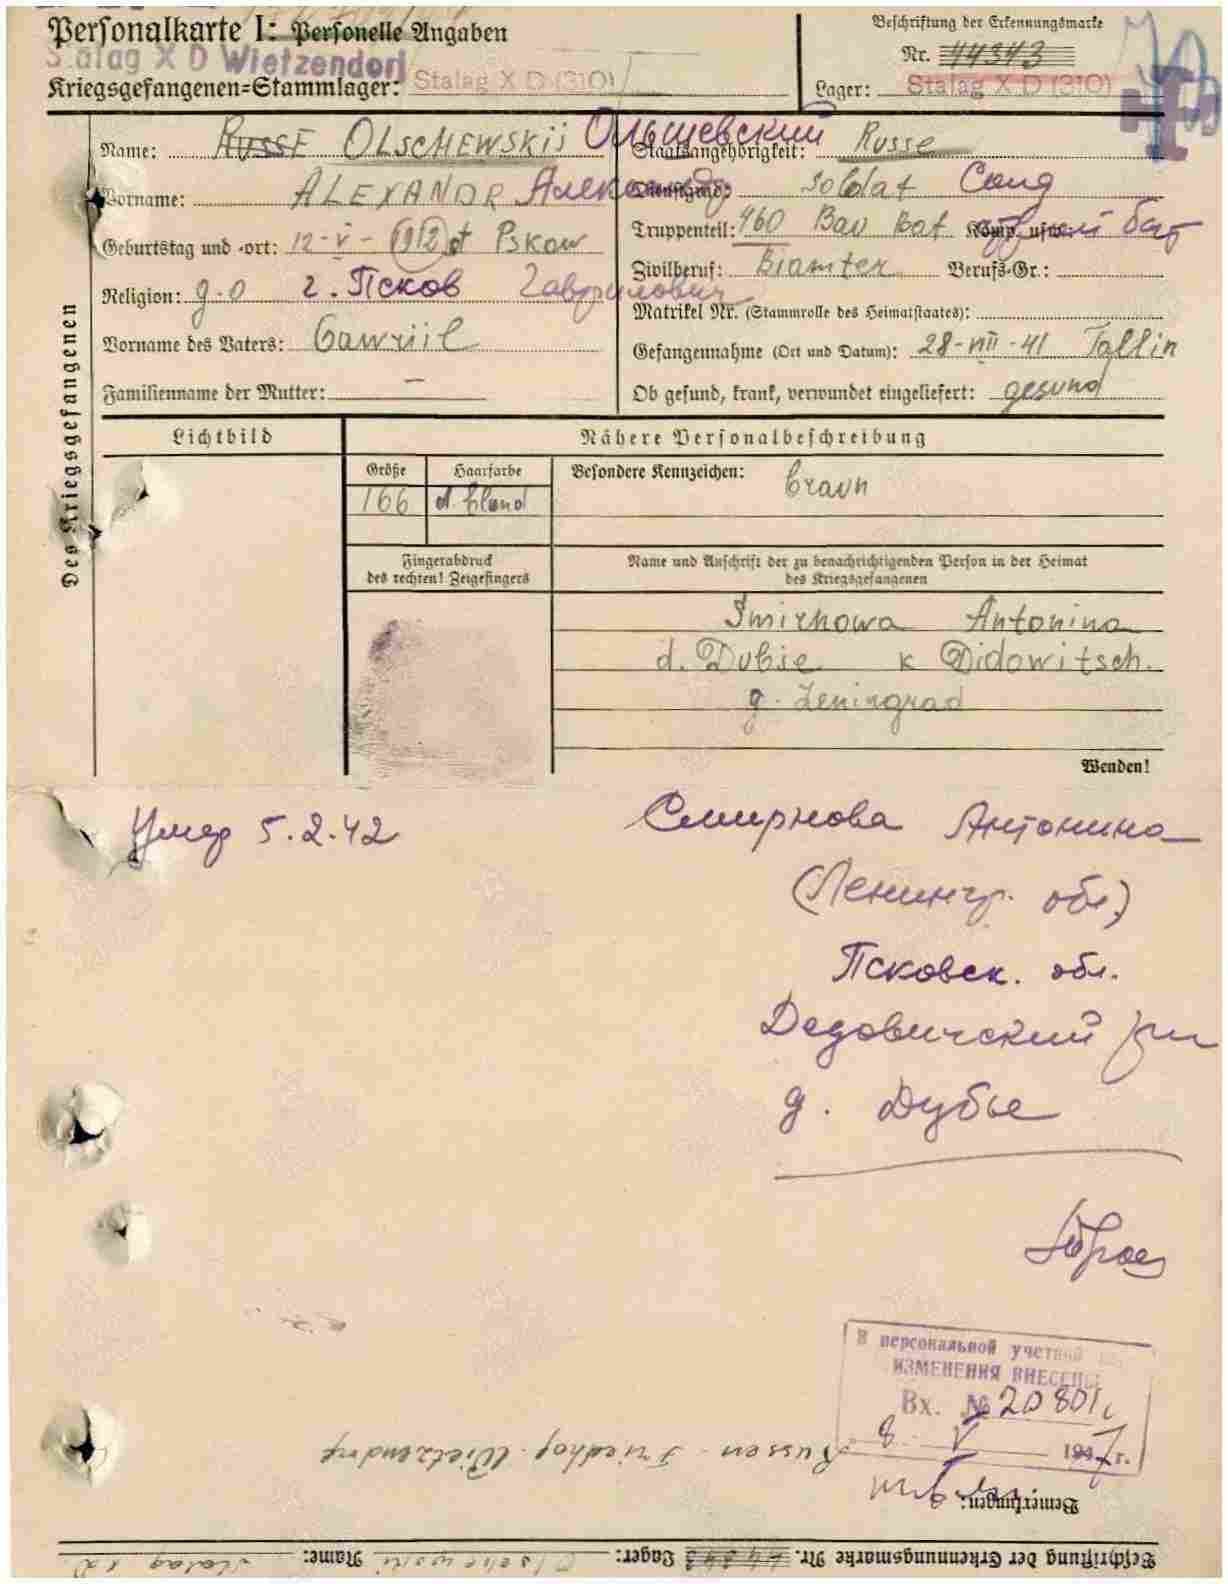 Personalkarte I: Personelle Angaben
Stalag X D Wietzendorf
Kriegsgefangenen-Stammlager: Stalag X D (310)
Beschriftung der Erkennungsmarke
Nr. 44343
Lager: Stalag X D (310)
Des Kriegsgefangenen
Name: Russe OLSCHEWSKIJ Ольшевский
Vorname: ALEXANDR Александр
Geburtstag und -ort: 12-V-1912 Pskow
Religion: g-o г. Псков Гаврилович
Vorname des Vaters: Gawriil
Familienname der Mutter: –
Staatsangehörigkeit: Russe
Dienstgrad: Soldat Солд
Truppenteil: 460 Bau Bat Komp. usw.: бат
Zivilberuf: Beamter Berufs-Gr.:
Matrikel Nr. (Stammrolle des Heimatstaates):
Gefangennahme (Ort und Datum): 28-VIII-41 Tallin
Ob gesund, krank, verwundet eingeliefert: gesund
Lichtbild
Nähere Personalbeschreibung
Größe Haarfarbe Besondere Kennzeichen: braun
166 d. blond
Fingerabdruck
des rechten! Zeigefingers
Name und Anschrift der zu benachrichtigenden Person in der Heimat
des Kriegsgefangenen
Smirnowa Antonina
d. Dubje k Didowitsch.
g. Leningrad
Wenden!
Умер 5.2.42
Смирнова Антонина
(Ленингр. обл)
Псковск. обл.
Дедовичский
д. Дубье
В персональной учетной
ИЗМЕНЕНИЯ ВНЕСЕНЫ
Вх. № 20801
8. V 1947 г.
Russen-Friedhof Wietzendorf
Bemerkungen:
Beschriftung der Erkennungsmarke Nr. 44343 Lager: Stalag X D Name: Olschewski